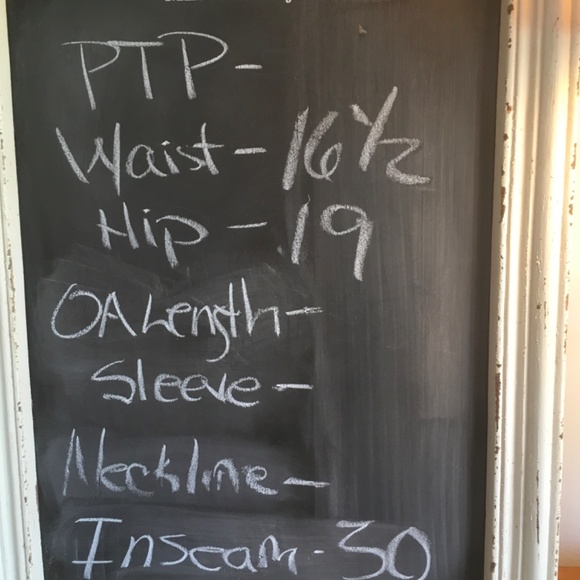 PTP-
Waist- 16 1/2
Hip - 19
OA Length-
Sleeve-
Neckline-
Inseam - 30